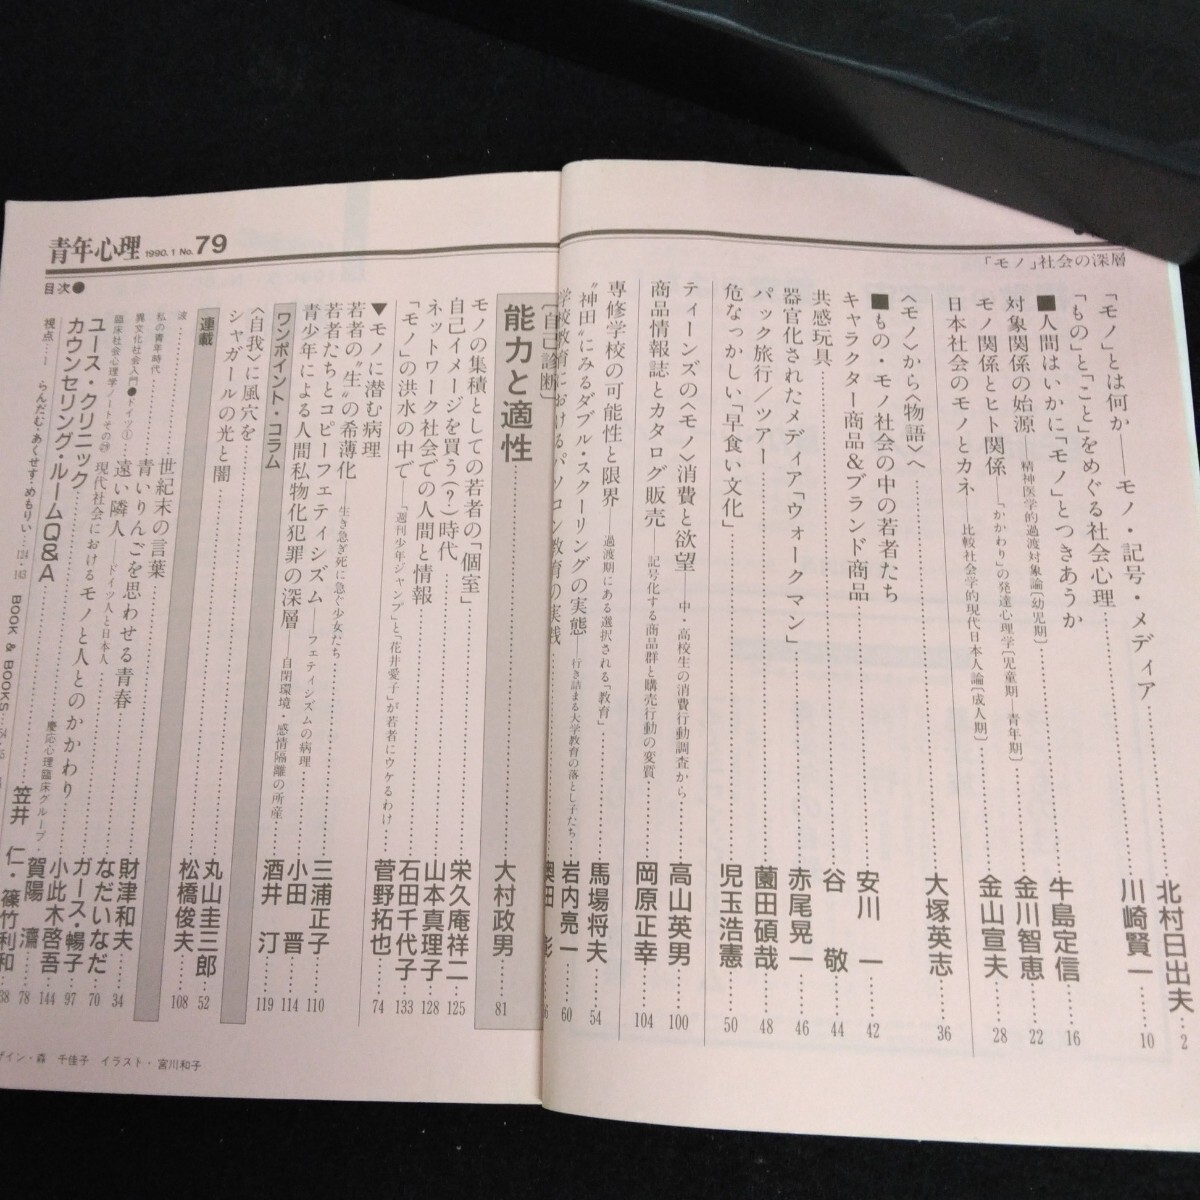 「モノ」社会の深層
「モノ」とは何か――モノ・記号・メディア……北村日出夫 2
「もの」と「こと」をめぐる社会心理……川崎賢一 10
■人間はいかに「モノ」とつきあうか
対象関係の始源――精神医学的過渡対象論〔幼児期〕……牛島定信 16
モノ関係とヒト関係――「かかわり」の発達心理学〔児童期―青年期〕……金川智恵 22
日本社会のモノとカネ――比較社会学的現代日本人論〔成人期〕……金山宣夫 28
〈モノ〉から〈物語〉へ……大塚英志 36
■もの・モノ社会の中の若者たち
キャラクター商品&ブランド商品……安川一 42
共感玩具……谷敬 44
器官化されたメディア「ウォークマン」……赤尾晃一 46
パック旅行/ツアー……薗田碩哉 48
危なっかしい「早食い文化」……児玉浩憲 50
ティーンズの〈モノ〉消費と欲望――中・高校生の消費行動調査から……高山英男 100
商品情報誌とカタログ販売――記号化する商品群と購売行動の変質……岡原正幸 104
専修学校の可能性と限界――過渡期にある選択される「教育」……馬場将夫 54
“神田”にみるダブル・スクーリングの実態――行き詰まる大学教育の落とし子たち……岩内亮一 60
学校教育におけるパソコン教育の実践……奥田
青年心理 1990.1 No.79
目次●
〔自己診断〕
能力と適性……大村政男 81
モノの集積としての若者の「個室」……栄久庵祥二 125
自己イメージを買う(?)時代……山本真理子 128
ネットワーク社会での人間と情報……石田千代子 133
「モノ」の洪水の中で――「週刊少年ジャンプ」と「花井愛子」が若者にウケるわけ……菅野拓也 74
▼モノに潜む病理
若者の“生”の希薄化――生き急ぎ死に急ぐ少女たち……三浦正子 110
若者たちとコピーフェティシズム――フェティシズムの病理……小田晋 114
青少年による人間私物化犯罪の深層――自閉環境・感情隔離の所産……酒井汀 119
ワンポイント・コラム
〈自我〉に風穴を……丸山圭三郎 52
シャガールの光と闇……松橋俊夫 108
連載
波 世紀末の言葉……財津和夫 34
私の青年時代 青いりんごを思わせる青春……なだいなだ 70
異文化社会入門●ドイツ① 遠い隣人――ドイツ人と日本人……ガース・暢子 97
臨床社会心理学ノートその 現代社会におけるモノと人とのかかわり……小此木啓吾 144
ユース・クリニック……賀陽濟 78
カウンセリング・ルームQ&A……慶応心理臨床グループ
視点 らんだむ・あくせす・めもりい……笠井仁・篠竹利和
124・143 BOOK & BOOKS
千佳子 イラスト・宮川和子